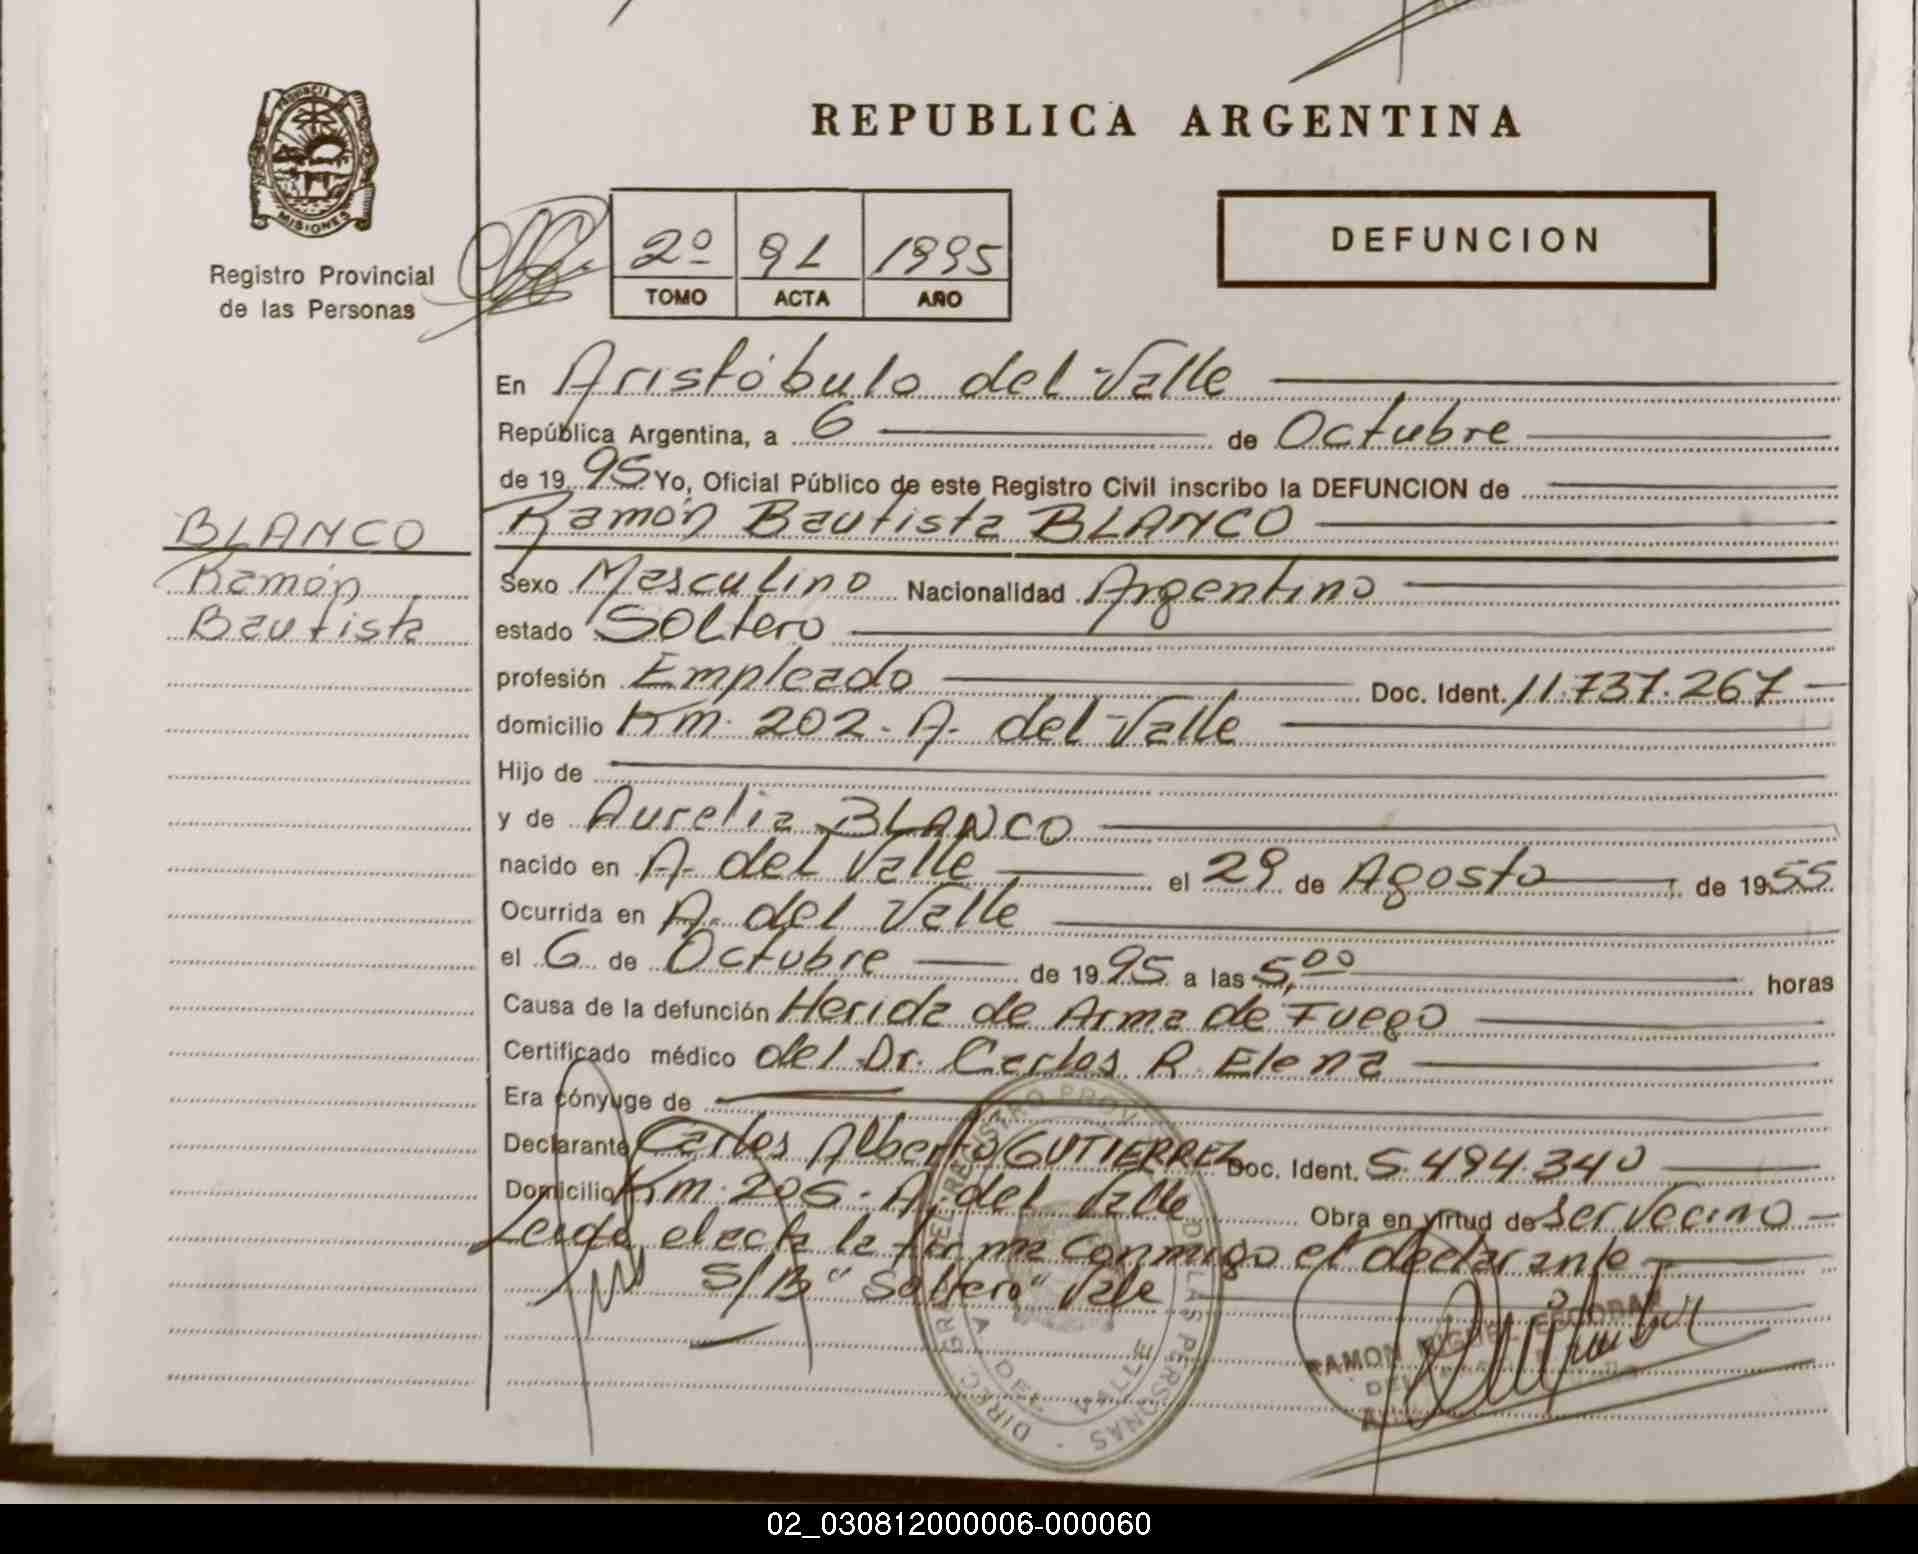 REPUBLICA ARGENTINA
PROVINCIA
MISIONES
Registro Provincial
de las Personas
2º 91 1995
TOMO ACTA AÑO
DEFUNCION
En Aristóbulo del Valle
República Argentina, a 6 de Octubre
de 1995 Yo, Oficial Público de este Registro Civil inscribo la DEFUNCION de
Ramón Bautista BLANCO
BLANCO
Ramón
Bautista
Sexo Masculino Nacionalidad Argentino
estado Soltero
profesión Empleado Doc. Ident. 11.737.267
domicilio Km. 202 - A. del Valle
Hijo de
y de Aurelia BLANCO
nacido en A. del Valle el 29 de Agosto de 1955
Ocurrida en A. del Valle
el 6 de Octubre de 1995 a las 5,00 horas
Causa de la defunción Herida de Arma de Fuego
Certificado médico del Dr. Carlos R. Elena
Era cónyuge de
Declarante Carlos Alberto GUTIERREZ Doc. Ident. 5.494.340
Domicilio Km. 205 - A. del Valle Obra en virtud de ser Vecino
Leida el acta la firma conmigo el declarante
S/B "Soltero" Vale
A. DEL VALLE
RAMON MIGUEL ESCOBAR
02_030812000006-000060